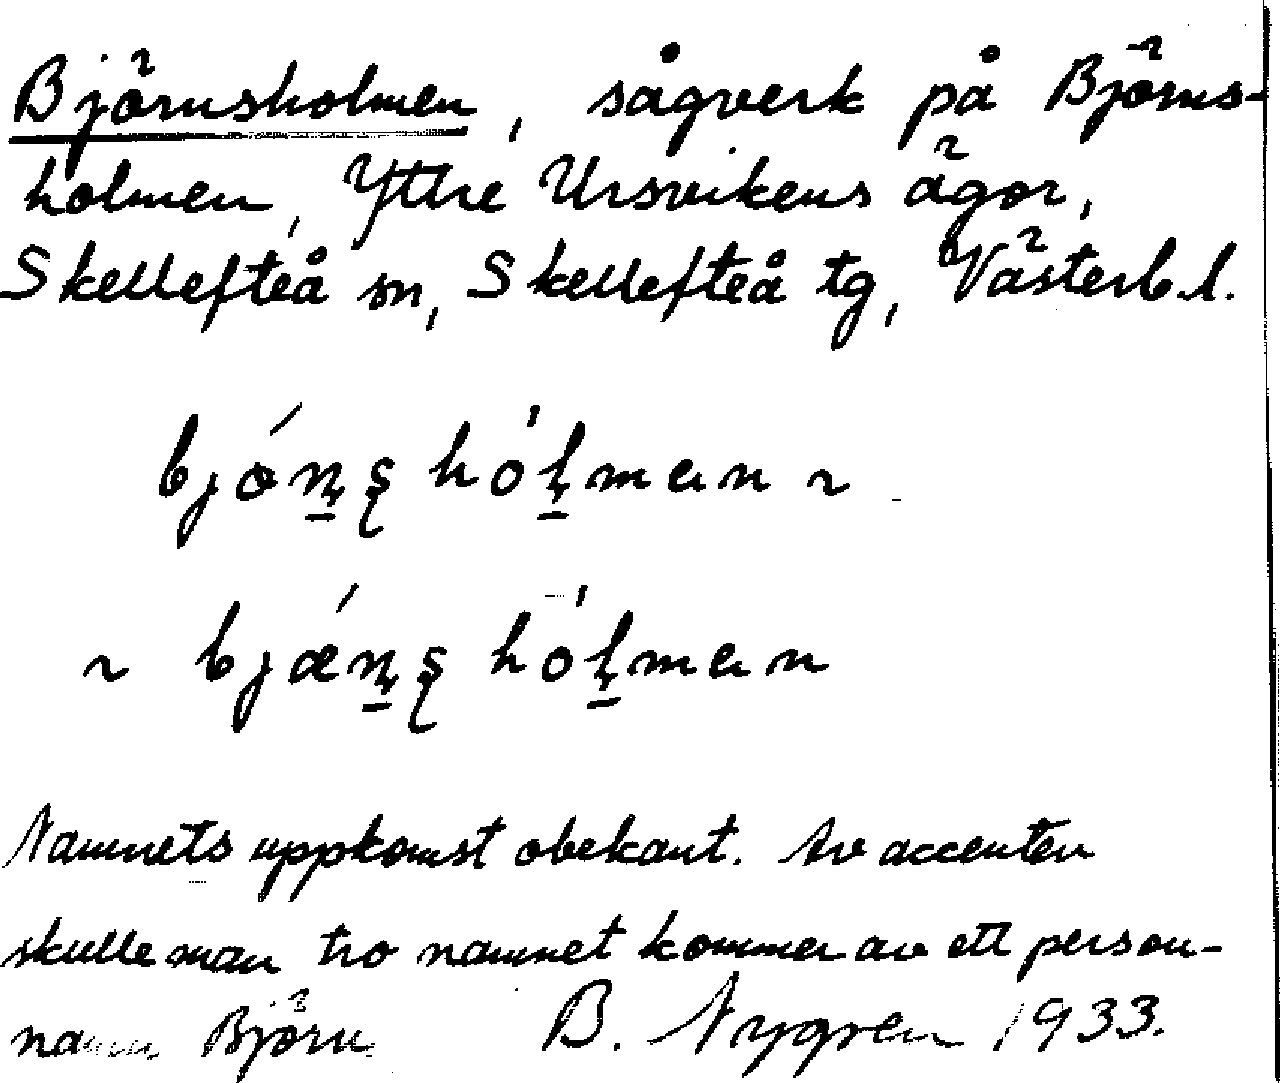 Björnsholmen, sågverk på Björns-
holmen, Yttre Ursvikens ägor,
Skellefteå sn, Skellefteå tg, Västerb.l.
bjóṇṣhóḷmɑn ~
~ bjǽṇṣhóḷmɑn
Namnets uppkomst obekant. Av accenten
skulle man tro namnet kommer av ett person-
namn Björn. B. Nygren 1933.